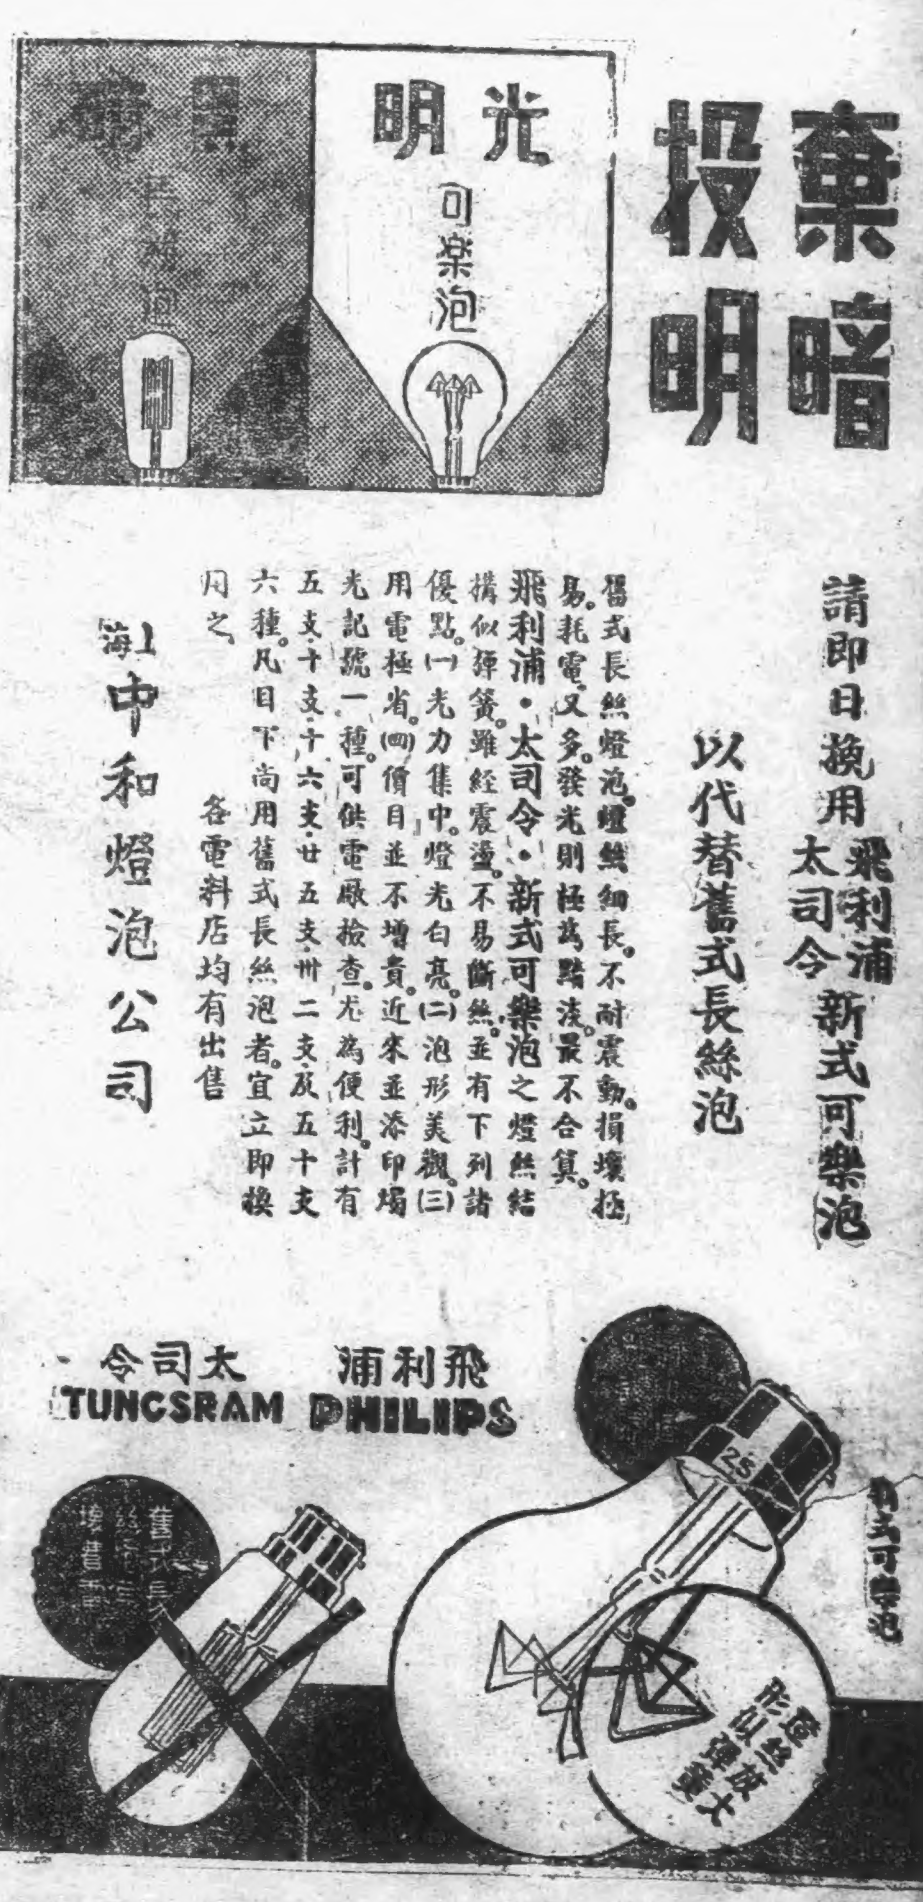 棄暗
投明
光明
可楽泡
黑暗
長絲泡
請即日換用飛利浦太司令新式可樂泡
以代替舊式長絲泡
舊式長絲燈泡。燈絲細長。不耐震動。損壞極
易。耗電又多。發光則極為黯淡。最不合算。
飛利浦・太司令・新式可樂泡之燈絲結
構似彈簧。雖經震盪。不易斷絲。並有下列諸
優點。㈠光力集中。燈光白亮。㈡泡形美觀。㈢
用電極省。㈣價目並不增貴。近來並添印燭
光記號一種。可供電廠檢查。尤為便利。計有
五支・十支・十六支・廿五支・卅二支・及五十支
六種。凡目下尚用舊式長絲泡者。宜立即換
用之。
各電料店均有出售
上海中和燈泡公司
飛利浦
PHILIPS
太司令
TUNGSRAM
25
新式可樂泡
燈絲放大
形似彈簧
舊式長